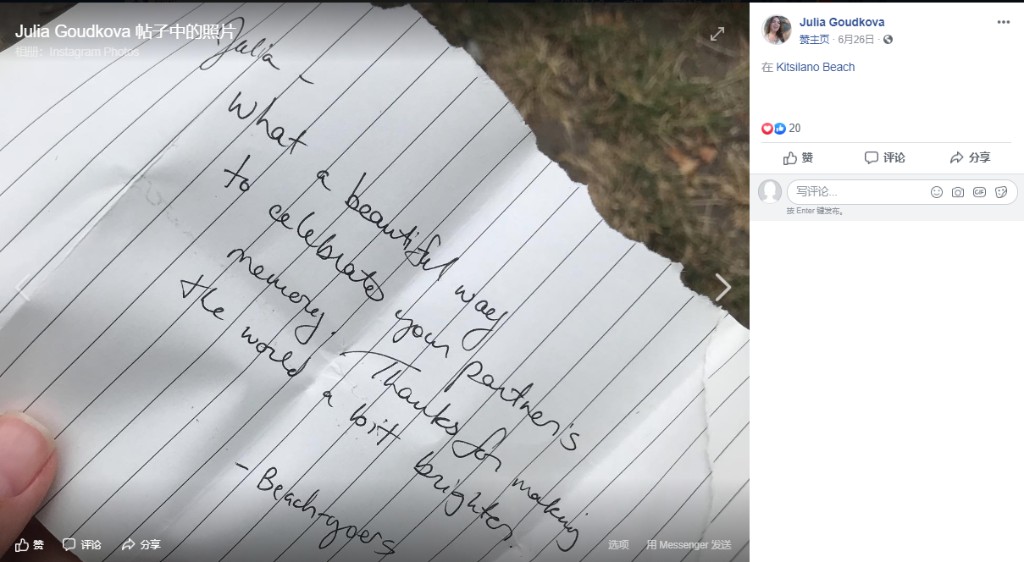 Julia Goudkova 帖子中的照片
相册：Instagram Photos
Julia -
What a beautiful way
to celebrate your partner's
memory. Thanks for making
the world a bit brighter.
- Beach-goers
赞 评论 分享
选项 用 Messenger 发送
Julia Goudkova
赞主页 · 6月26日 ·
在 Kitsilano Beach
20
赞 评论 分享
写评论...
GIF
按 Enter 键发布。